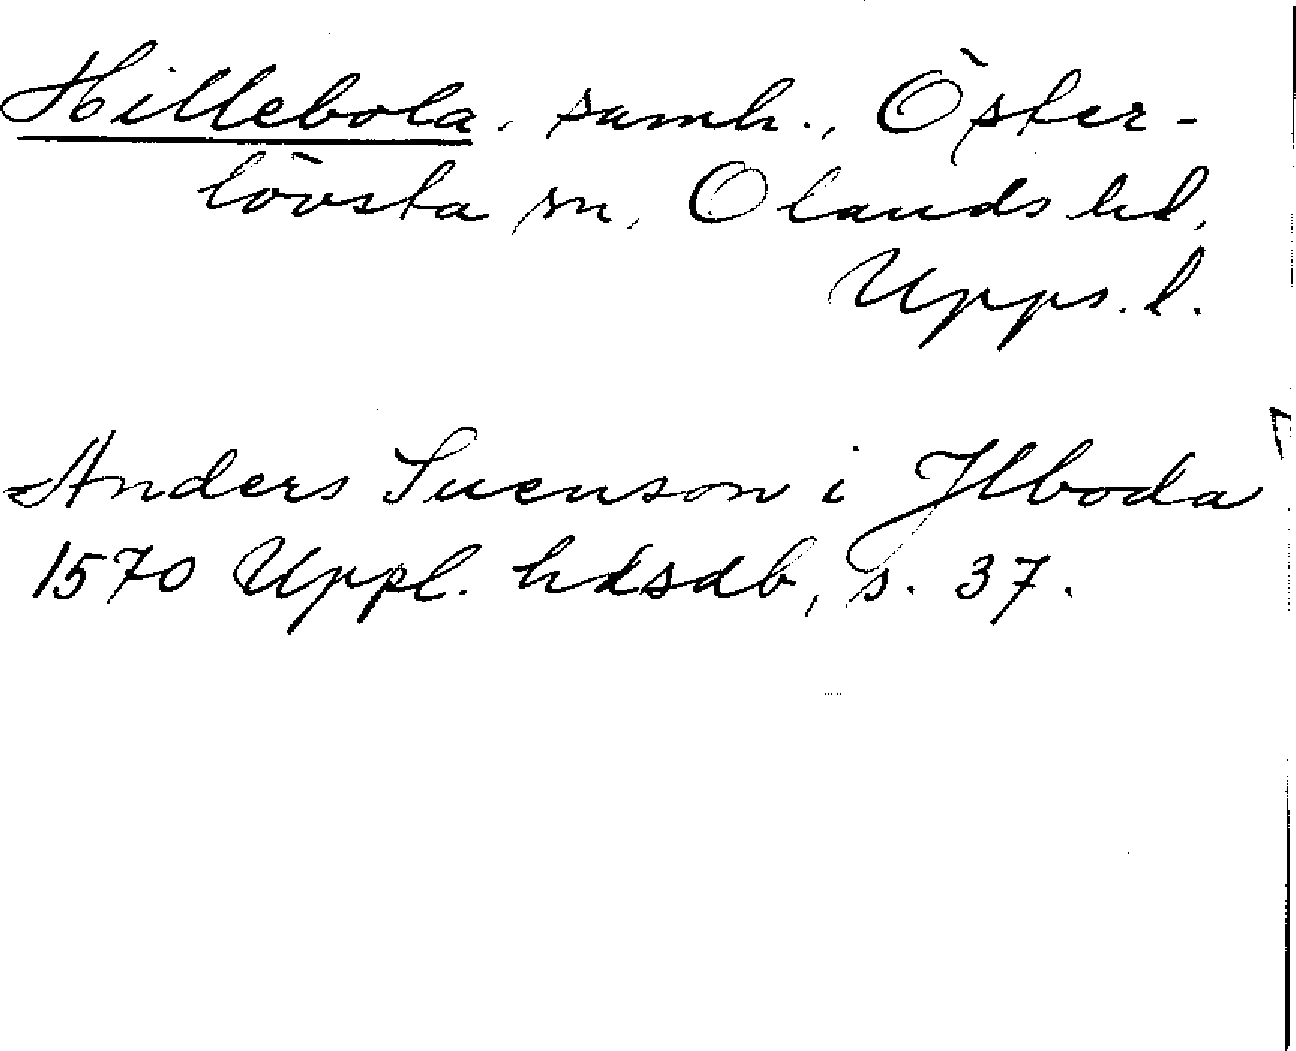 Hillebola, samh., Öster-
lövsta sn, Olands hd,
Upps. l.
Anders Suenson i Jlboda
1570 Uppl. hdsdb, s. 37.